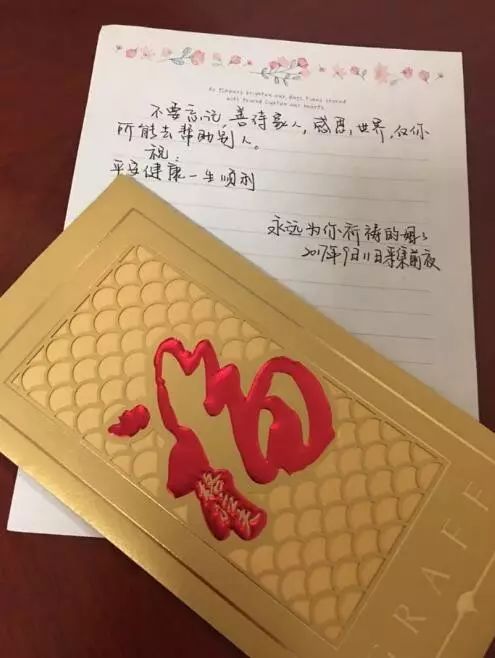 As flowers brighten our days, times shared
with friends lighten our hearts.
不要忘记善待家人,感恩,世界,仅你
所能去帮助别人。
祝:
平安健康一生顺利
永远为你祈祷的妈妈
2017年9月11日采集前夜
福
GRAFF